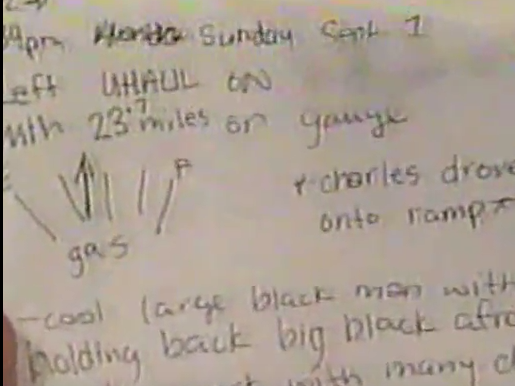 9pm Sunday Sept 1
Left UHAUL ON
with 23.7 miles on gauge
E F
*charles drove
onto ramp*
gas
-cool large black man with
holding back big black afro
with many